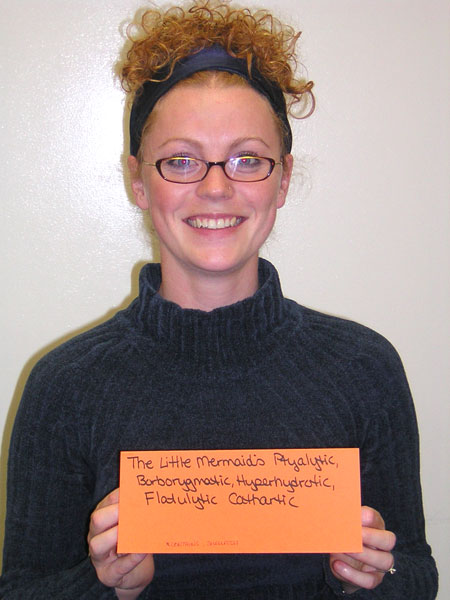 The Little Mermaid's Ptyalytic,
Borborygmatic, Hyperhydrotic,
Flatulytic Cathartic